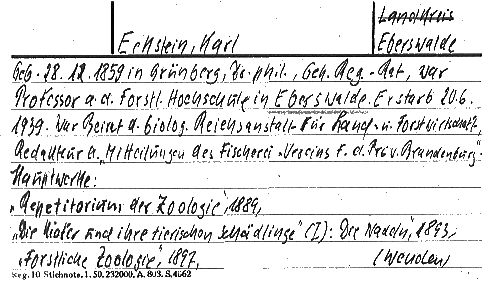 Landkreis
Eckstein, Karl Eberswalde
Geb. 28.12.1859 in Grünberg, Dr. phil., Geh. Reg.-Rat, war
Professor a. d. Forstl. Hochschule in Eberswalde. Er starb 20.6.
1939. War Beirat d. biolog. Reichsanstalt für Land- u. Forstwirtschaft,
Redakteur d. „Mitteilungen des Fischerei-Vereins f. d. Prov. Brandenburg".
Hauptwerke:
„Repetitorium der Zoologie", 1889,
„Die Kiefer und ihre tierischen Schädlinge" (I): Die Nadeln", 1893,
„Forstliche Zoologie", 1897, (Wenden)
Reg. 10 Stichnote. 1. 50. 232000. A. 803. S. 4662